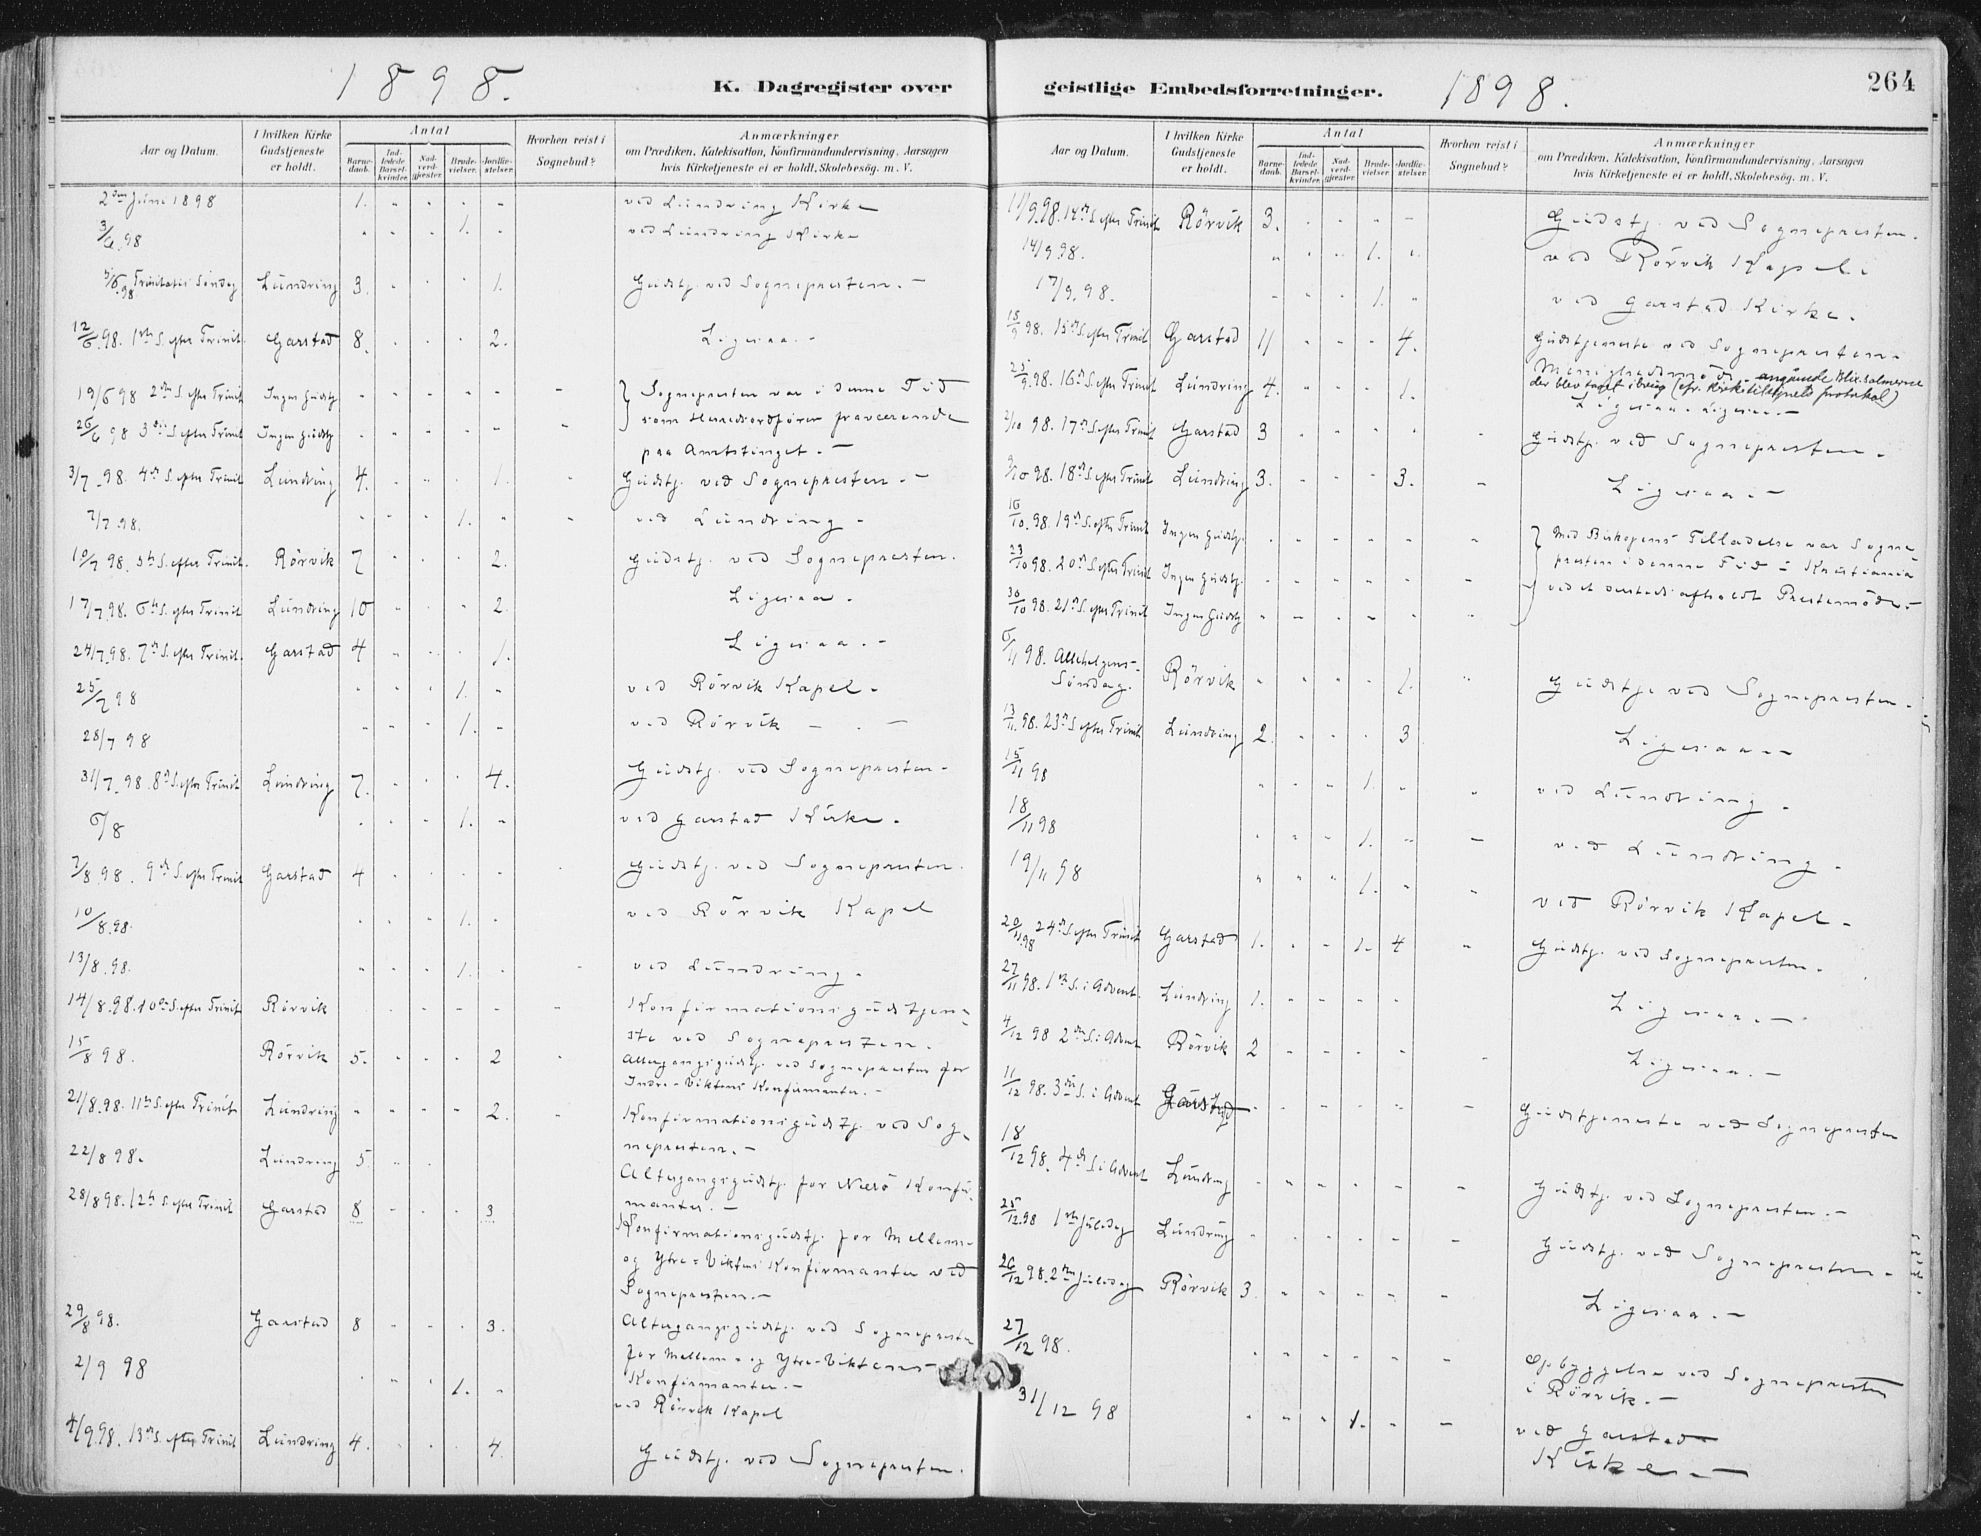 1898.
K. Dagregister over
Aar og Datum.
I hvilken Kirke Gudstjeneste er holdt.
Antal
Barnedaab.
Indledede Barselkvinder.
Nadverdgjæster.
Brudevielser.
Jordfæstelser.
Hvorhen reist i Sognebud?
Anmærkninger
om Prædiken, Katekisation, Konfirmandundervisning, Aarsagen
hvis Kirketjeneste ei er holdt, Skolebesøg. m. V.
2den Juni 1898 1. " " " " ved Lundring Kirke
3/6.98 " " " 1. " ved Lundring Kirke
5/6.98 Trinitatis Søndag Lundring 3. " " " 1. Gudstj. ved Sognepresten. -
12/6.98. 1ste S. efter Trinit. Garstad 8. " " " 2. Ligesaa. -
19/6 98 2den S. efter Trinit Ingen Gudstj " " " " " " Sognepresten var i denne Tid
26/6 98 3die S. efter Trinit Ingen Gudstj " " " " " " som Herredsordfører fraværende
paa Amtstinget. -
3/7.98. 4de S. efter Trinit Lundring 4. " " " 1. " Gudstj. ved Sognepresten. -
7/7.98. " " " 1. " " ved Lundring -
10/7 98. 5te S. efter Trinit. Rörvik 7 " " " 2. Gudstj. ved Sognepresten.
17/7.98. 6te S. efter Trinit Lundring 10 " " " 2. Ligesaa.
24/7.98. 7de S. efter Trinit. Garstad 4 " " " 1. Ligesaa. -
25/7 98 " " " 1. " ved Rörvik Kapel -
28/7 98 " " " 1. " ved Rörvik - " -
31/7.98. 8de S. efter Trinit Lundring 7. " " " 4. Gudstj. ved Sognepresten -
6/8 " " " 1. " ved Garstad Kirke.
7/8.98. 9de S. efter Trinit Garstad 4 " " " " " Gudstj. ved Sognepresten.
10/8.98. " " " 1. " ved Rörvik Kapel
13/8.98. " " " 1. " " ved Lundring.
14/8.98. 10de S. efter Trinit Rörvik " " " " " Konfirmationsgudstjene-
ste ved Sognepresten.
15/8 98. Rörvik 5. " " " 2 " Altergangsgudstj. ved Sognepresten for
Indre-Viktens Konfirmanter. -
21/8.98. 11te S. efter Trinit. Lundring " " " " 2. " Konfirmationsgudstj. ved Sog-
nepresten. -
22/8 98. Lundring 5 " " Altergangsgudstj. for Nærö Konfir-
manter. -
28/8 98. 12te S. efter Trinit Garstad 8 " " " 3 Konfirmationsgudstj. for Mellem-
og Ytre-Viktens Konfirmanter ved
Sognepresten. -
29/8 98. Garstad 8 " " " 3. Altergangsgudstj. ved Sognepresten
for Mellem- og Ytre-Viktens
Konfirmanter. -
2/9 98 " " " 1. " ved Rörvik Kapel
4/9.98. 13de S. efter Trinit Lundring 4. " " " 4. Gudstj. ved Sognepresten.
geistlige Embedsforretninger.
1898.
264
Aar og Datum.
I hvilken Kirke Gudstjeneste er holdt.
Antal
Barnedaab.
Indledede Barselkvinder.
Nadverdgjæster.
Brudevielser.
Jordfæstelser.
Hvorhen reist i Sognebud?
Anmærkninger
om Prædiken, Katekisation, Konfirmandundervisning, Aarsagen
hvis Kirketjeneste ei er holdt, Skolebesøg. m. V.
11/9.98. 14de S. efter Trinit Rörvik 3. " " " - Gudstj. ved Sognepresten.
14/9 98. " " " 1. " ved Rörvik Kapel.
17/9.98. " " " 1. " ved Garstad Kirke.
18/9 98. 15de S. efter Trinit Garstad 11 " " " 4. Gudstjeneste ved Sognepresten.
Menighedsmöde angående Blix. salmerne
der blev taget i brug (cfr. kirketilsynets protokol)
25/9.98. 16de S. efter Trinit Lundring 4. " " " 1. Ligesaa. Ligesaa. -
2/10 98. 17de S. efter Trinit Garstad 3 " " " " " Gudstj. ved Sognepresten -
9/10 98. 18de S. efter Trinit Lundring 3. " " " 3. " Ligesaa. -
16/10.98. 19de S. efter Trinit Ingen Gudstj. " " " " " " Med Biskopens Tilladelse var Sogne-
23/10 98. 20de S. efter Trinit Ingen Gudstj. " " " " " " presten i denne Tid i Kristiania
30/10 98. 21de S. efter Trinit Ingen Gudstj " " " " " " ved et dersteds afholdt Prestemöde. -
6/11 98. Allehelgens-
Søndag. Rörvik " " " " 1. " Gudstj. ved Sognepresten -
13/11.98. 23de S. efter Trinit Lundring 2. " " " 3 Ligesaa -
15/11 98 " " " 1. " " ved Lundring -
18/11 98 " " " 1. " - ved Lundring -
19/11 98 " " " 1. " " ved Rörvik Kapel -
20/11.98 24de S. efter Trinit Garstad 1. " " 1. 4 " Gudstj. ved Sognepresten.
27/11 98. 1ste S. i Advent. Lundring 1. " " " " Ligesaa. -
4/12 98 2den S. i Advent Rörvik 2 " " " " " Ligesaa. -
11/12 98. 3die S. i Advent Garstad " " " " " - Gudstjeneste ved Sognepresten
18/12 98. 4de S. i Advent Lundring " " " " " - Gudstj. ved Sognepresten. -
25/12.98 1ste Juledag Lundring " " " " " - Gudstj. ved Sognepresten -
26/12 98. 2den Juledag Rörvik 3. " " " " - Ligesaa. -
27/12 98. " " " " " - Opbyggelse ved Sognepresten
i Rörvik. -
31/12 98 " " " 1. " - ved Garstad
Kirke. -